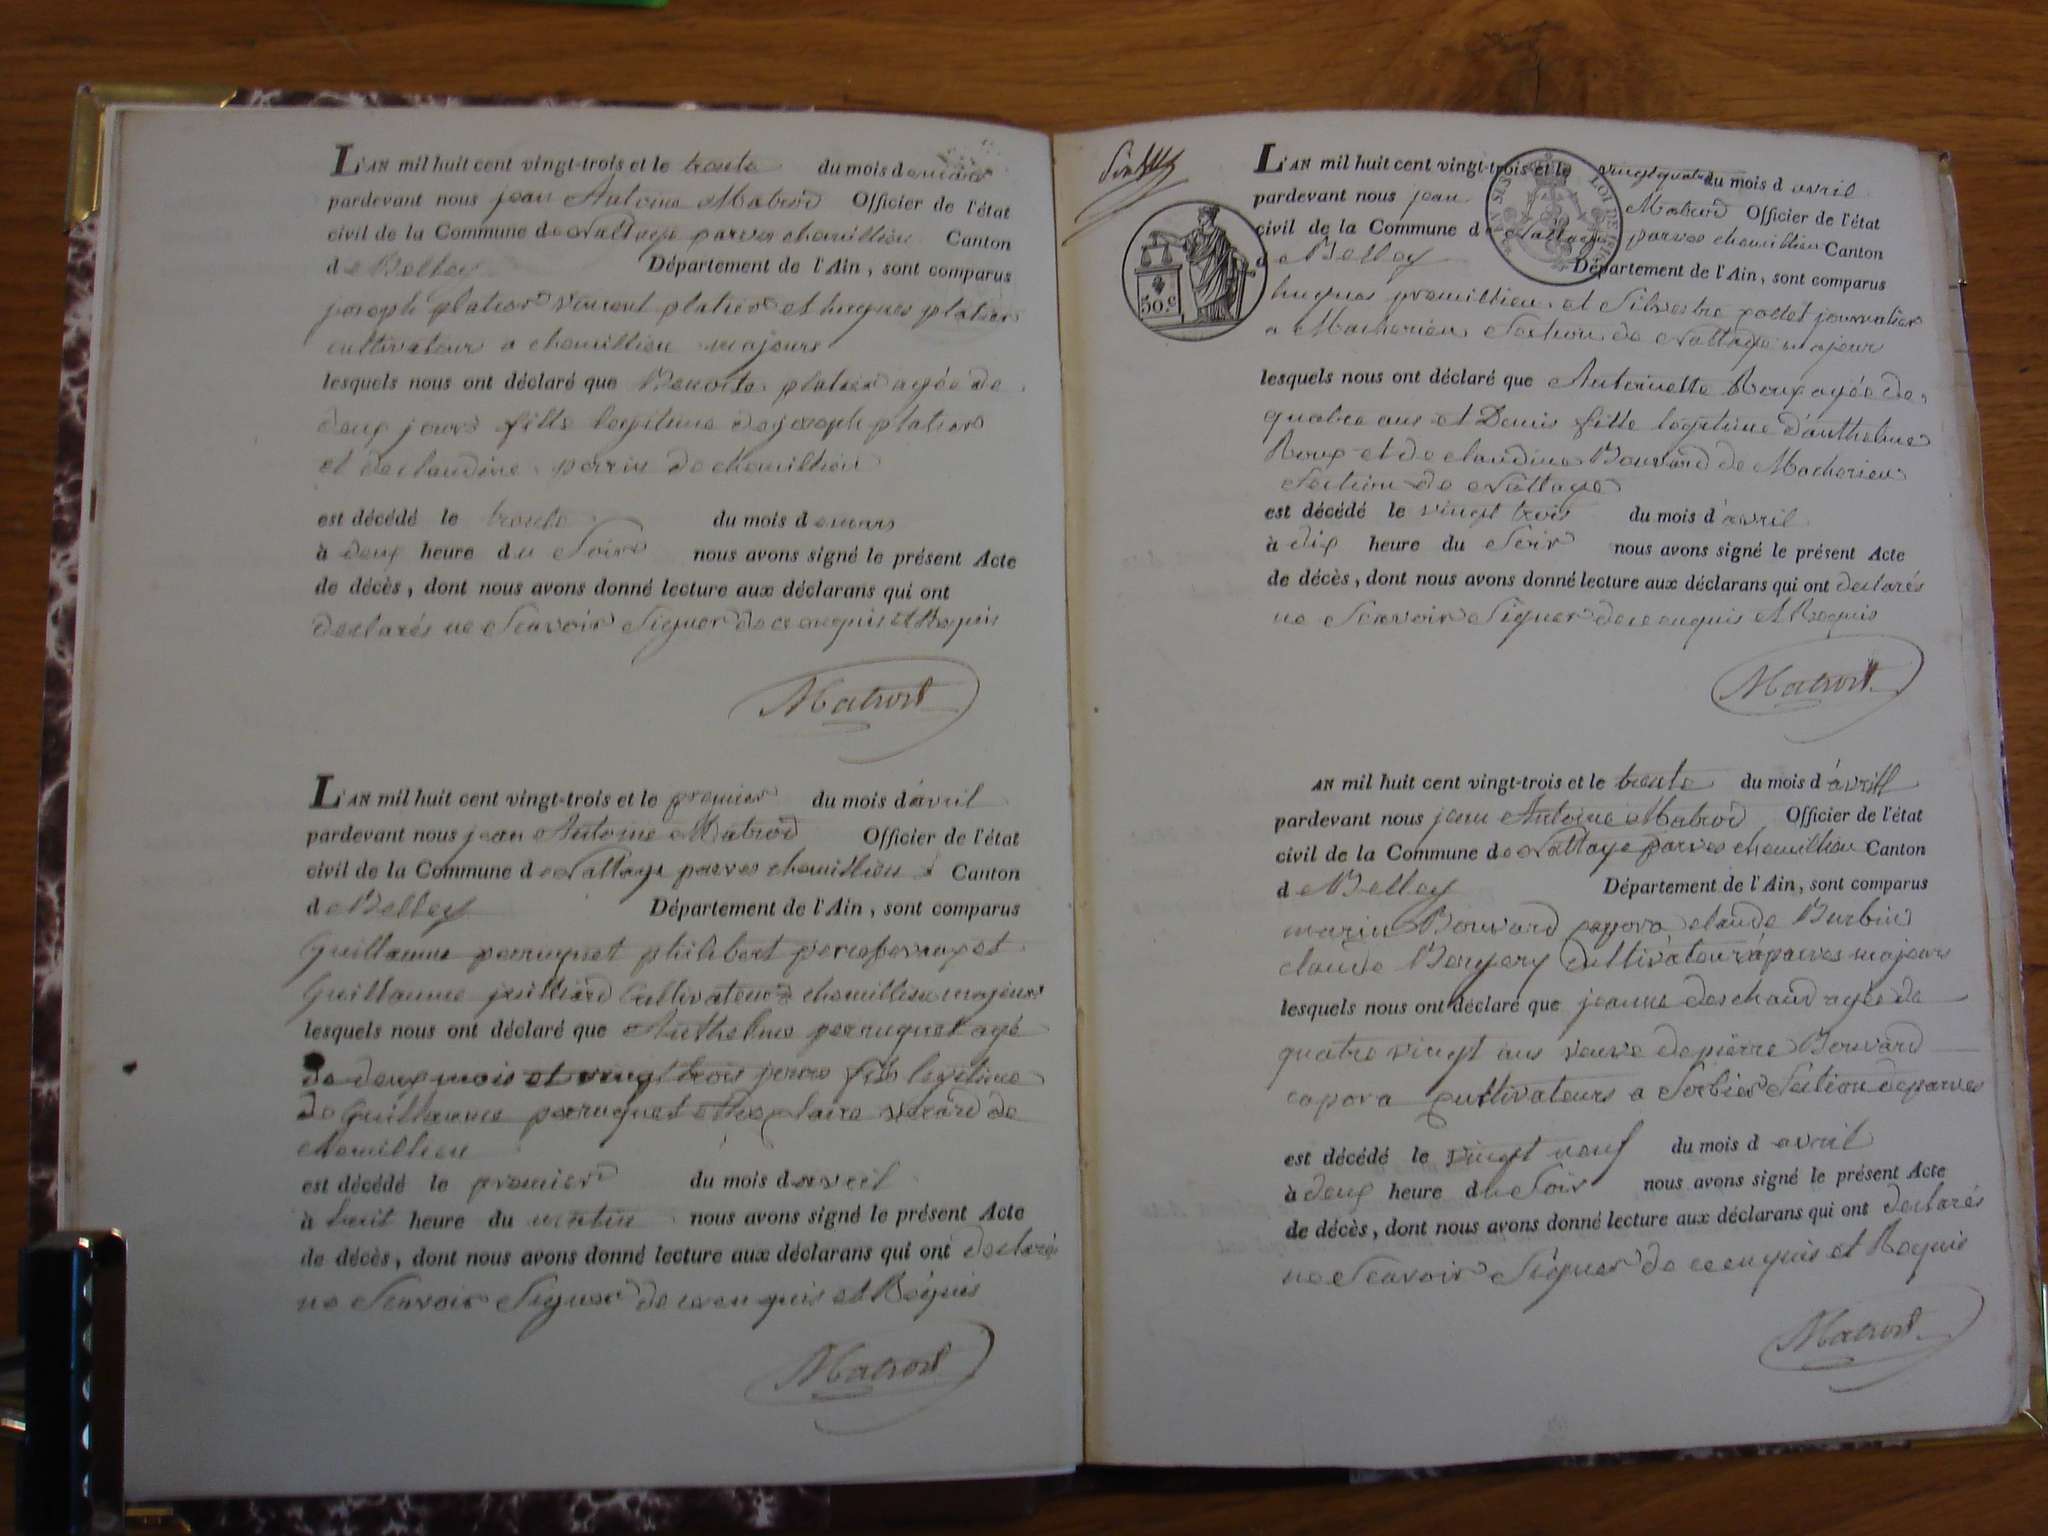 L'AN mil huit cent vingt-trois et le trente du mois de mars
pardevant nous jean Antoine Matrod Officier de l'état
civil de la Commune de Nattage parves chemillieu Canton
de Belley Département de l'Ain, sont comparus
joseph platier vincent platier et hugues platier
cultivateur a chemillieu majeurs
lesquels nous ont déclaré que Benoite platier agée de
deux jours fille legitime de joseph platier
et de claudine perrin de chemillieu
est décédé le trente du mois de mars
à deux heure du Soir nous avons signé le présent Acte
de décès, dont nous avons donné lecture aux déclarans qui ont
declarés ne Scavoir Signer de ce enquis et Requis
Matrod
L'AN mil huit cent vingt-trois et le premier du mois d'avril
pardevant nous jean Antoine Matrod Officier de l'état
civil de la Commune de Nattage parves chemillieu Canton
de Belley Département de l'Ain, sont comparus
Guillaume perruquet philibert et
Guillaume juilliard Cultivateur a chemillieu majeurs
lesquels nous ont déclaré que Anthelme perruquet agé
de deux mois et vingt trois jours fils legitime
de Guillaume perruquet et de claire de
chemillieu
est décédé le premier du mois d avril
à huit heure du matin nous avons signé le présent Acte
de décès, dont nous avons donné lecture aux déclarans qui ont declarés
ne Scavoir Signer de ce enquis et Requis
Matrod
L'AN mil huit cent vingt-trois et le vingt quatre du mois d avril
pardevant nous jean Matrod Officier de l'état
civil de la Commune de Nattage parves chemillieu Canton
de Belley Département de l'Ain, sont comparus
hugues premillieu et Silvestre pollet journalier
a Macherieu Section de Nattage majeur
50 c
lesquels nous ont déclaré que Antoinette Roux agée de
quatre ans et Demis fille légitime d'anthelme
Roux et de claudine Bouvard de Macherieu
Section de Nattage
est décédé le vingt trois du mois d'avril
à dix heure du Soir nous avons signé le présent Acte
de décès, dont nous avons donné lecture aux déclarans qui ont declarés
ne Scavoir Signer de ce enquis et Requis
Matrod
AN mil huit cent vingt-trois et le trente du mois d'avrill
pardevant nous jean Antoine Matrod Officier de l'état
civil de la Commune de Nattage parves chemillieu Canton
de Belley Département de l'Ain, sont comparus
marin Bouvard capora claude Burbin
claude Bergery Cultivateur à parves majeurs
lesquels nous ont déclaré que jeanne deschand agée de
quatre vingt ans veuve de pierre Bouvard
capora Cultivateurs a Sorbier Section de parves
est décédé le vingt neuf du mois d avril
à deux heure du Soir nous avons signé le présent Acte
de décès, dont nous avons donné lecture aux déclarans qui ont declarés
ne Scavoir Signer de ce enquis et Requis
Matrod